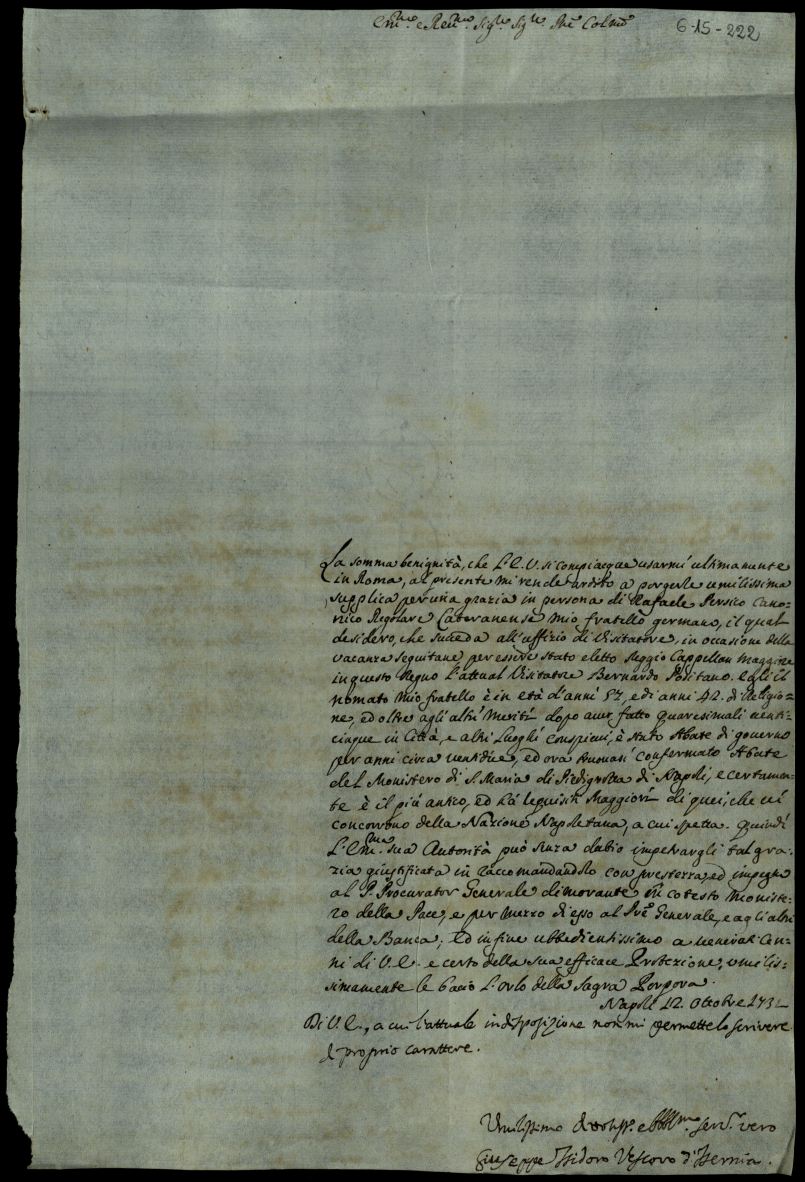 Em̃o. e Reu.mo Sig.r Sig.r Pñe Colmo
6-15-222
La somma benignità, che L'E.V. si compiacque usarmi ultimamente
in Roma, al presente mi rende ardito a porgerle umilissima
supplica per una grazia in persona di Rafaele Persico Cano-
nico Regolare Lateranense mio fratello germano, il qual
desidero, che succeda all'uffizio di Visitatore, in occasione della
vacanza seguitane, per essere stato eletto Reggio Cappellan Maggiore
in questo Regno l'attual Visitatore Bernardo Positano. Egli il
nomato mio fratello è in età d'anni 57, e di anni 42. di Religio-
ne, ed oltre agli altri meriti dopo aver fatto Quaresimali venti-
cinque in Città, e altri Luoghi conspicui, è stato Abate di governo
per anni circa ventidue, ed ora trovasi confermato Abate
del Monistero di S. Maria di Piedigrotta di Napoli, e certamen-
te è il più antico, ed há requisiti maggiori di quei, che vi
concorrono della Nazione Napoletana, a cui spetta. Quindi
L'Em.ma sua Autorità può senza dubio impetrargli tal gra-
zia giustificata in raccomandandolo con prestezza, ed impegno
al P. Procurator Generale dimorante in cotesto Moniste-
ro della Pace, e per mezzo di esso al Pre Generale, e agli altri
della Banca; Ed infine ubbedientissimo a venerati Cen-
ni di V.E. e certo della sua efficace Protezione, umilis-
simamente le bacio l'orlo della Sagra Porpora.
Napoli 12. Ottobre 1732
Di V.E., a cui l'attuale indisposizione non mi permette lo scrivere
di proprio carattere.
Umilissimo divotiss. e obbl.mo ser.r vero
Giuseppe Isidoro Vescovo d'Isernia.